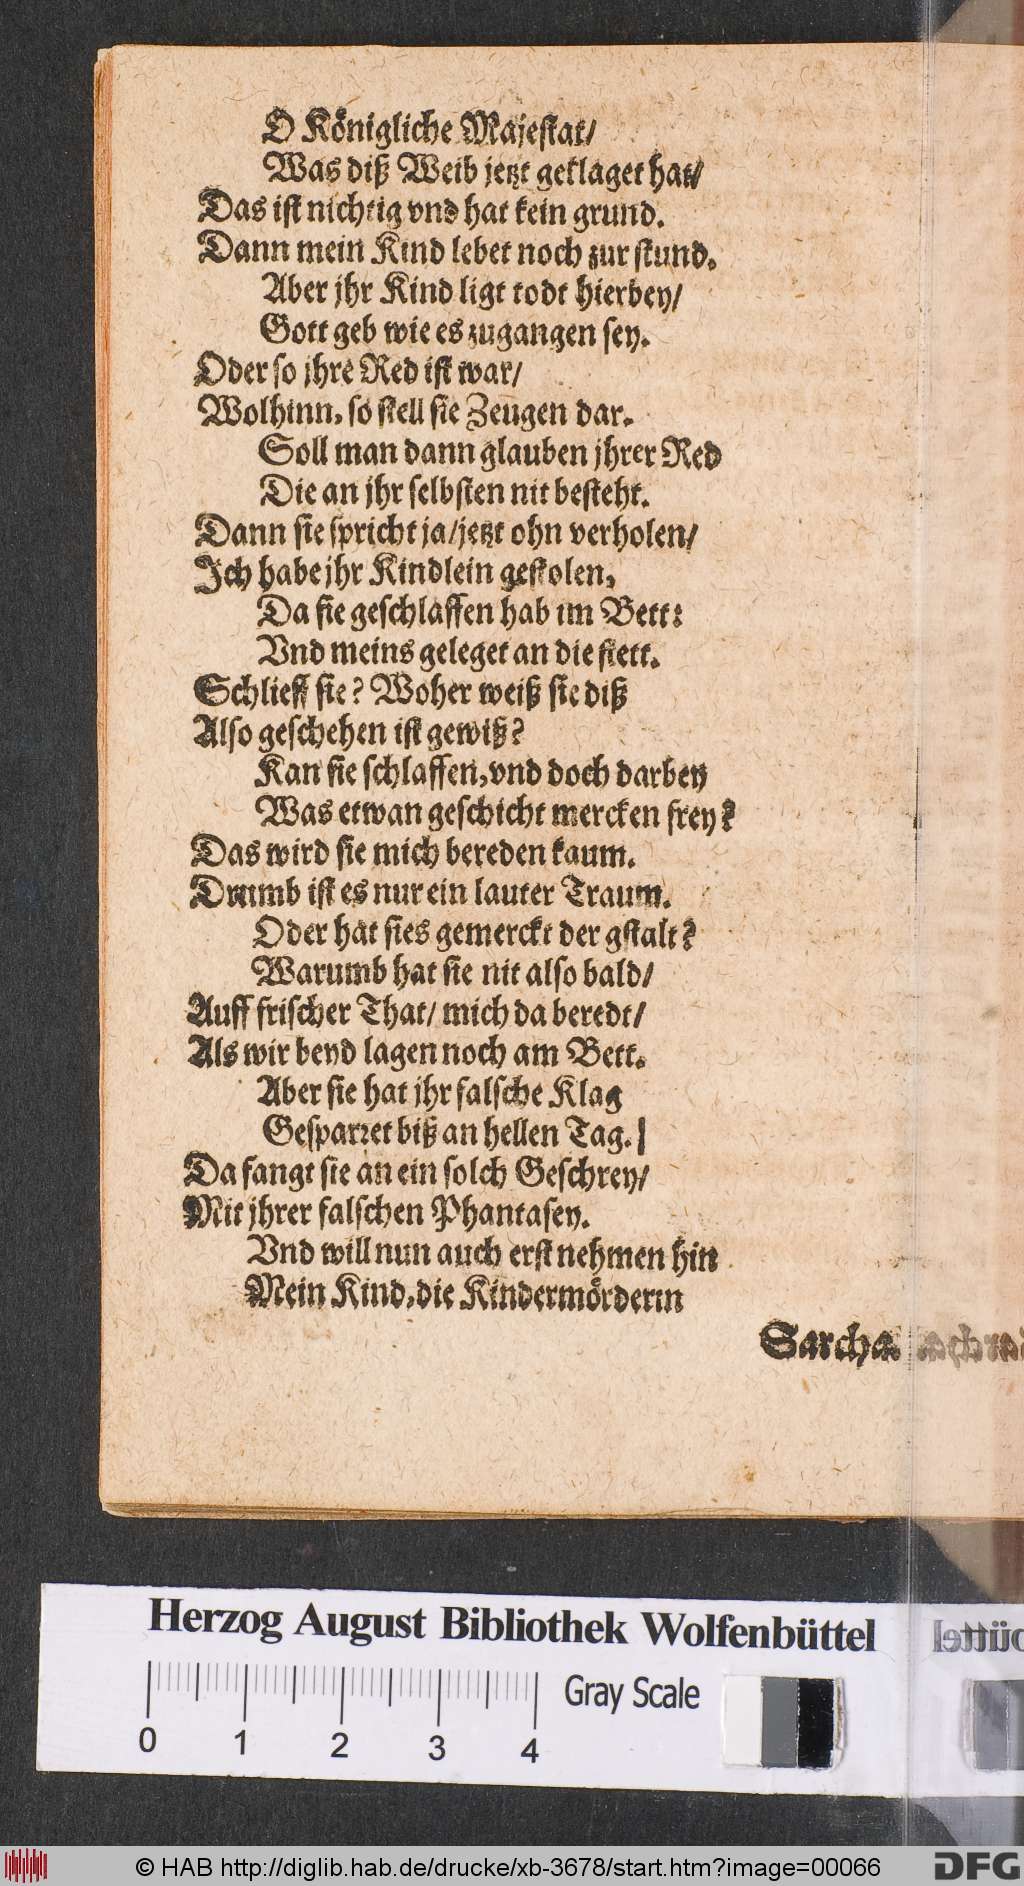 O Königliche Majestat/
Was diß Weib jetzt geklaget hat/
Das ist nichtig vnd hat kein grund.
Dann mein Kind lebet noch zur stund.
Aber jhr Kind ligt todt hierbey/
Gott geb wie es zugangen sey.
Oder so jhre Red ist war/
Wolhinn, so stell sie Zeugen dar.
Soll man dann glauben jhrer Red
Die an jhr selbsten nit besteht.
Dann sie spricht ja/jetzt ohn verholen/
Ich habe jhr Kindlein gestolen,
Da sie geschlaffen hab im Bett:
Vnd meins geleget an die stett.
Schlieff sie? Woher weiß sie diß
Also geschehen ist gewiß?
Kan sie schlaffen, vnd doch darbey
Was etwan geschicht mercken frey?
Das wird sie mich bereden kaum.
Drumb ist es nur ein lauter Traum.
Oder hat sies gemerckt der gstalt?
Warumb hat sie nit also bald/
Auff frischer That/ mich da beredt/
Als wir beyd lagen noch am Bett.
Aber sie hat jhr falsche Klag
Gesparret biß an hellen Tag.
Da fangt sie an ein solch Geschrey/
Mit jhrer falschen Phantasey.
Vnd will nun auch erst nehmen hin
Mein Kind, die Kindermörderin
Sarcha.
Herzog August Bibliothek Wolfenbüttel
Gray Scale
0 1 2 3 4
© HAB http://diglib.hab.de/drucke/xb-3678/start.htm?image=00066
DFG